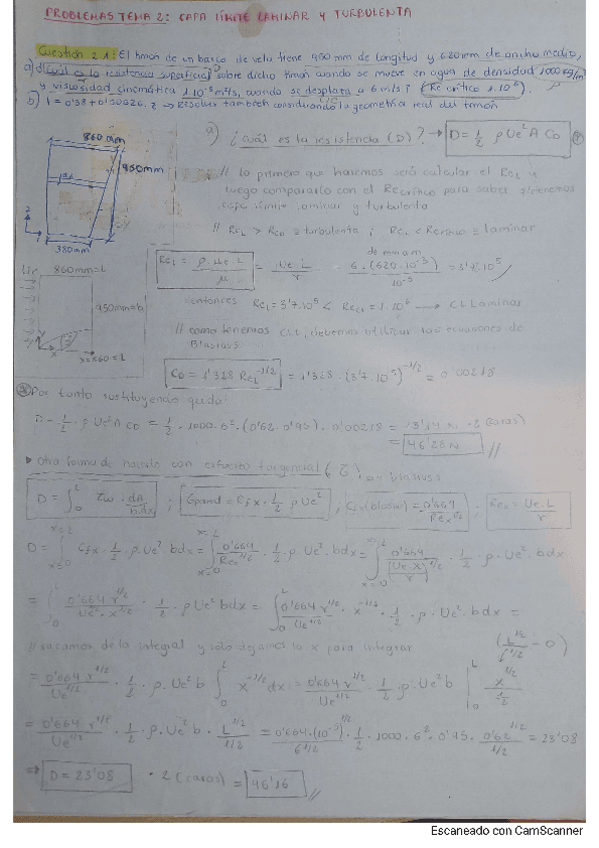 PROBLEMAS TEMA 2: CAPA LÍMITE LAMINAR Y TURBULENTA
Cuestión 2.1: El timón de un barco de vela tiene 950 mm de longitud y 620 mm de ancho medio,
a) ¿Cuál es la resistencia superficial sobre dicho timón cuando se mueve en agua de densidad 1000 kg/m³
y viscosidad cinemática 1·10⁻⁵ m²/s, cuando se desplaza a 6 m/s? (Re crítico 1·10⁶).
b) Resolver también considerando la geometría real del timón
860 mm
950mm
380mm
a) ¿Cuál es la resistencia (D)? → D = 1/2 ρ Ue² A CD
// Lo primero que haremos será calcular el ReL y
luego compararlo con el Recrítico para saber si tenemos
capa límite laminar y turbulenta
// ReL > Recr = turbulenta ; ReL < Recrítico = laminar
ReL = ρ·Ue·L / μ = Ue·L / ν = 6·(620·10⁻³) / 10⁻⁵ = 3'7·10⁵
Ue
860mm=L
950mm=b
x=860=L
entonces ReL = 3'7·10⁵ < Recr = 1·10⁶ → CL Laminar
// como tenemos CLL, debemos utilizar las ecuaciones de
Blasius
CD = 1'328 ReL^-1/2 = 1'328·(3'7·10⁵)^-1/2 = 0'00218
Por tanto sustituyendo queda:
D = 1/2 · ρ Ue² A CD = 1/2 · 1000·6²·(0'62·0'95)·0'00218 = ·2 (caras)
= 46'28 N //
▸ Otra forma de hacerlo con esfuerzo tangencial (τ)
D = ∫₀ᴸ τω · dA ;
bdx
= Cfx · 1/2 ρ Ue² ; Cfx(Blasius) = 0'664 / Rex^1/2 ; Rex = Ue·L / ν
D = ∫ x=0 x=L Cfx · 1/2 · ρ · Ue² · bdx = ∫ x=0 x=L 0'664 / Rex^1/2 · 1/2 · ρ · Ue² · bdx = ∫ x=0 x=L 0'664 / [Ue·X / ν]^1/2 · 1/2 · ρ · Ue² · bdx
= ∫₀ᴸ 0'664 ν^1/2 / Ue^1/2 · x^1/2 · 1/2 · ρ Ue² b dx = ∫₀ᴸ 0'664 ν^1/2 / Ue^1/2 · x^-1/2 · 1/2 · ρ · Ue² · bdx =
// sacamos de la integral y solo dejamos la x para integrar
(L^1/2 / 1/2 - 0)
= 0'664 ν^1/2 / Ue^1/2 · 1/2 · ρ · Ue² b ∫₀ᴸ x^-1/2 dx = 0'664 ν^1/2 / Ue^1/2 · 1/2 · ρ · Ue² b |₀ᴸ x^1/2 / 1/2
= 0'664 ν^1/2 / Ue^1/2 · 1/2 · ρ · Ue² b · L^1/2 / 1/2 = 0'664·(10⁻⁵)^1/2 / 6^1/2 · 1/2 · 1000 · 6² · 0'95 · 0'62^1/2 / 1/2 = 23'08
⇒ D = 23'08 · 2 (caras) = 46'16 //
Escaneado con CamScanner